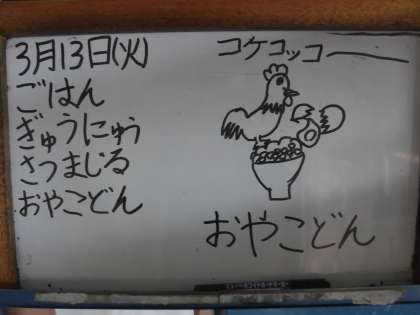 3月13日(火)
ごはん
ぎゅうにゅう
さつまじる
おやこどん
コケコッコー
おやこどん